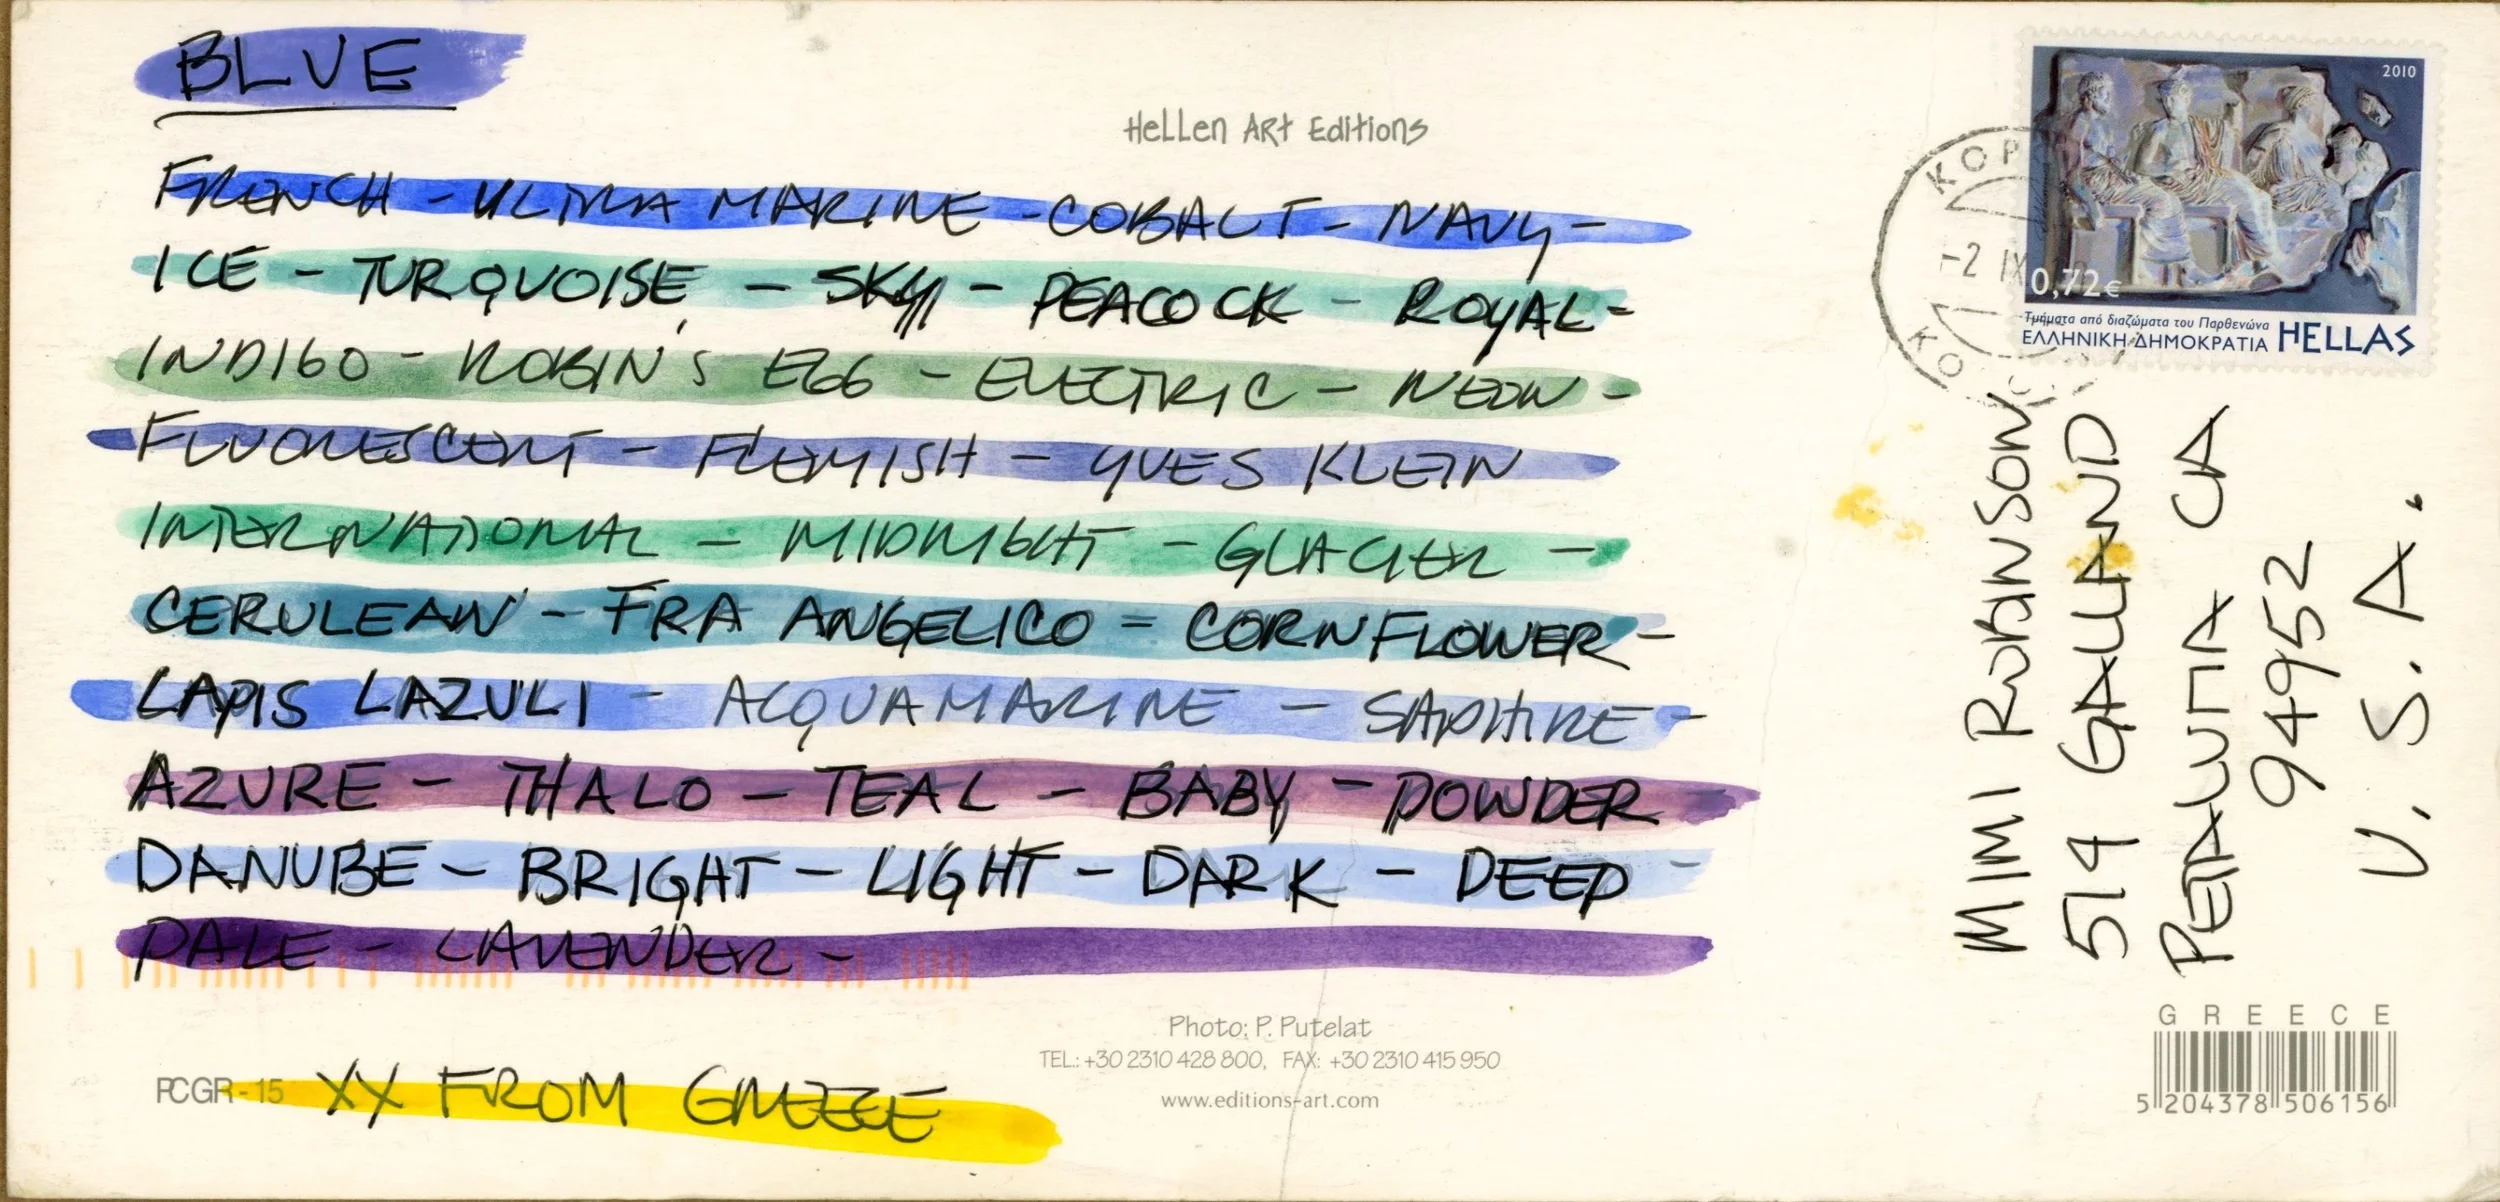 BLUE
Hellen Art Editions
FRENCH - ULTRA MARINE - COBALT - NAVY -
ICE - TURQUOISE - SKY - PEACOCK - ROYAL -
INDIGO - ROBIN'S EGG - ELECTRIC - NEON -
FLUORESCENT - FLEMISH - YVES KLEIN
INTERNATIONAL - MIDNIGHT - GLACIER -
CERULEAN - FRA ANGELICO = CORNFLOWER -
LAPIS LAZULI - ACQUAMARINE - SAPHIRE -
AZURE - THALO - TEAL - BABY - POWDER
DANUBE - BRIGHT - LIGHT - DARK - DEEP -
PALE - LAVENDER -
XX FROM GREECE
PCGR-15
Photo: P. Putelat
TEL.: +30 2310 428 800, FAX: +30 2310 415 950
www.editions-art.com
2010
0,72€
Τμήματα από διαζώματα του Παρθενώνα
ΕΛΛΗΝΙΚΗ ΔΗΜΟΚΡΑΤΙΑ HELLAS
ΚΟΡ
-2 IX
ΚΟ
MIMI ROBINSON
514 GALLAND
PETALUMA CA
94952
U.S.A.
GREECE
5 204378 506156